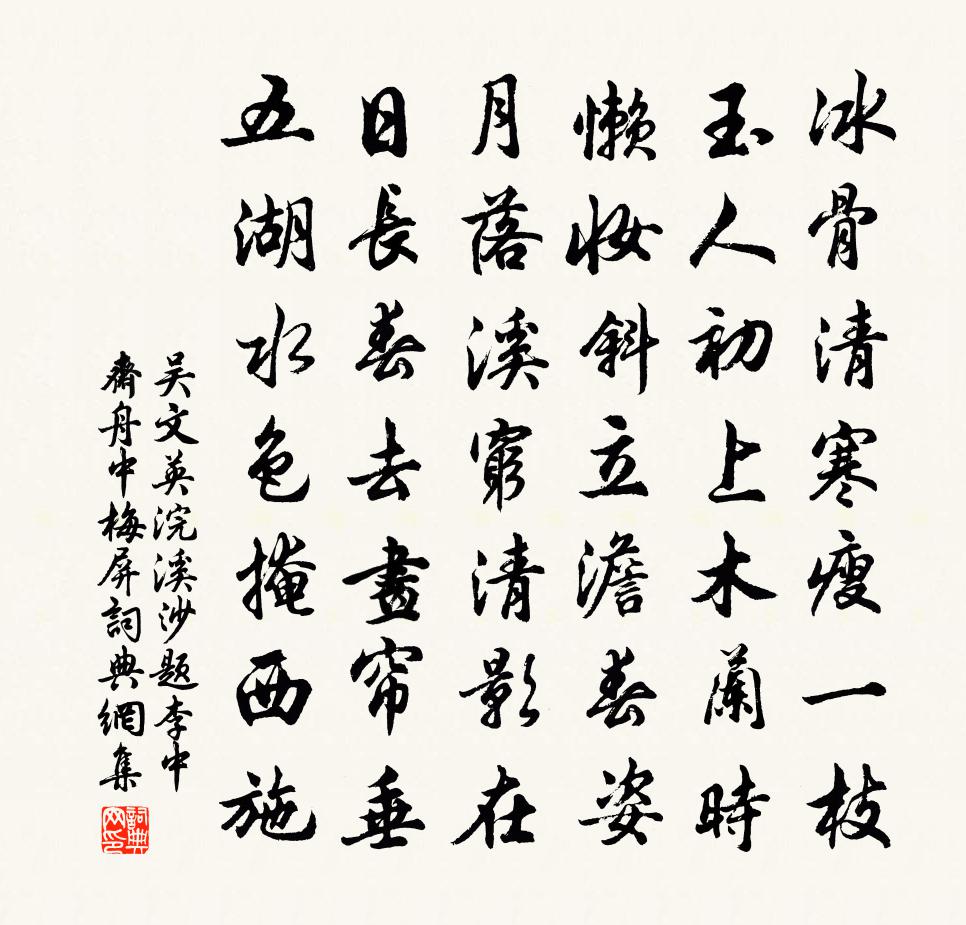 冰骨清寒瘦一枝
玉人初上木蘭時
懶妝斜立澹春姿
月落溪窮清影在
日長春去畫帘垂
五湖水色掩西施
吴文英浣溪沙题李中
齋舟中梅屏詞典網集
詞典網印